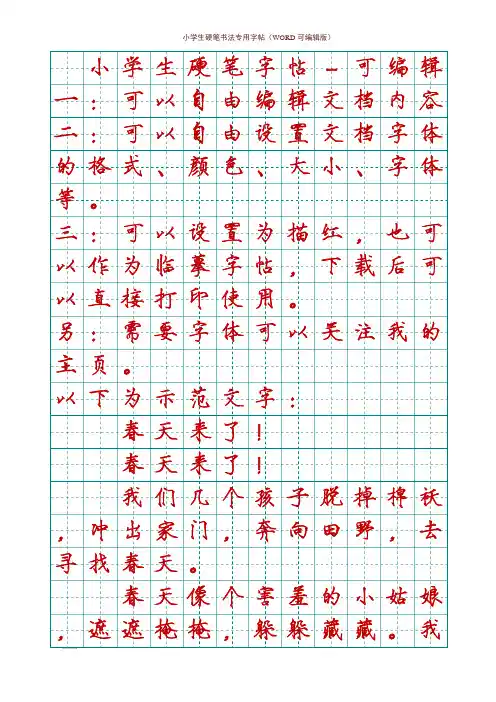 小学生硬笔书法专用字帖（WORD可编辑版）
小学生硬笔字帖-可编辑
一：可以自由编辑文档内容
二：可以自由设置文档字体
的格式、颜色、大小、字体
等。
三：可以设置为描红，也可
以作为临摹字帖，下载后可
以直接打印使用。
另：需要字体可以关注我的
主页。
以下为示范文字：
春天来了！
春天来了！
我们几个孩子脱掉棉袄
，冲出家门，奔向田野，去
寻找春天。
春天像个害羞的小姑娘
，遮遮掩掩，躲躲藏藏。我